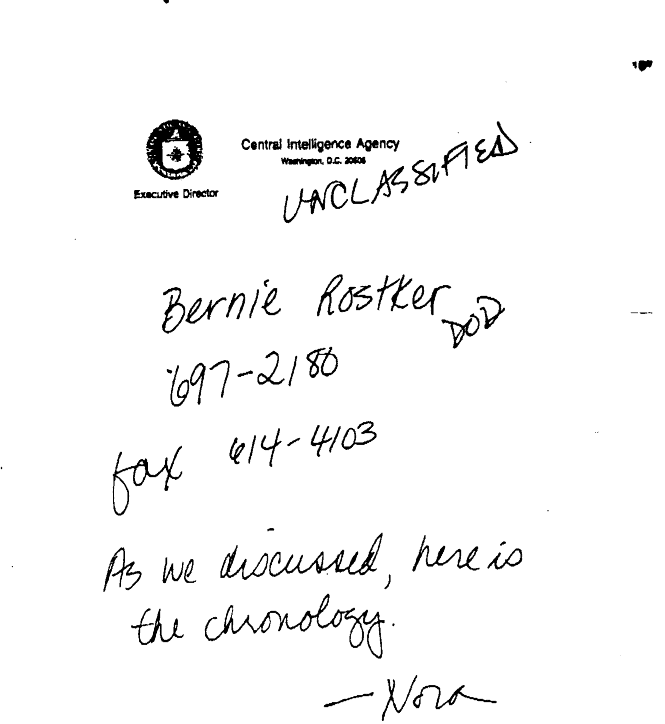 Central Intelligence Agency
Washington, D.C. 20505
Executive Director
UNCLASSIFIED
Bernie Rostker
DOD
697-2180
fax 614-4103
As we discussed, here is
the chronology.
—Nora